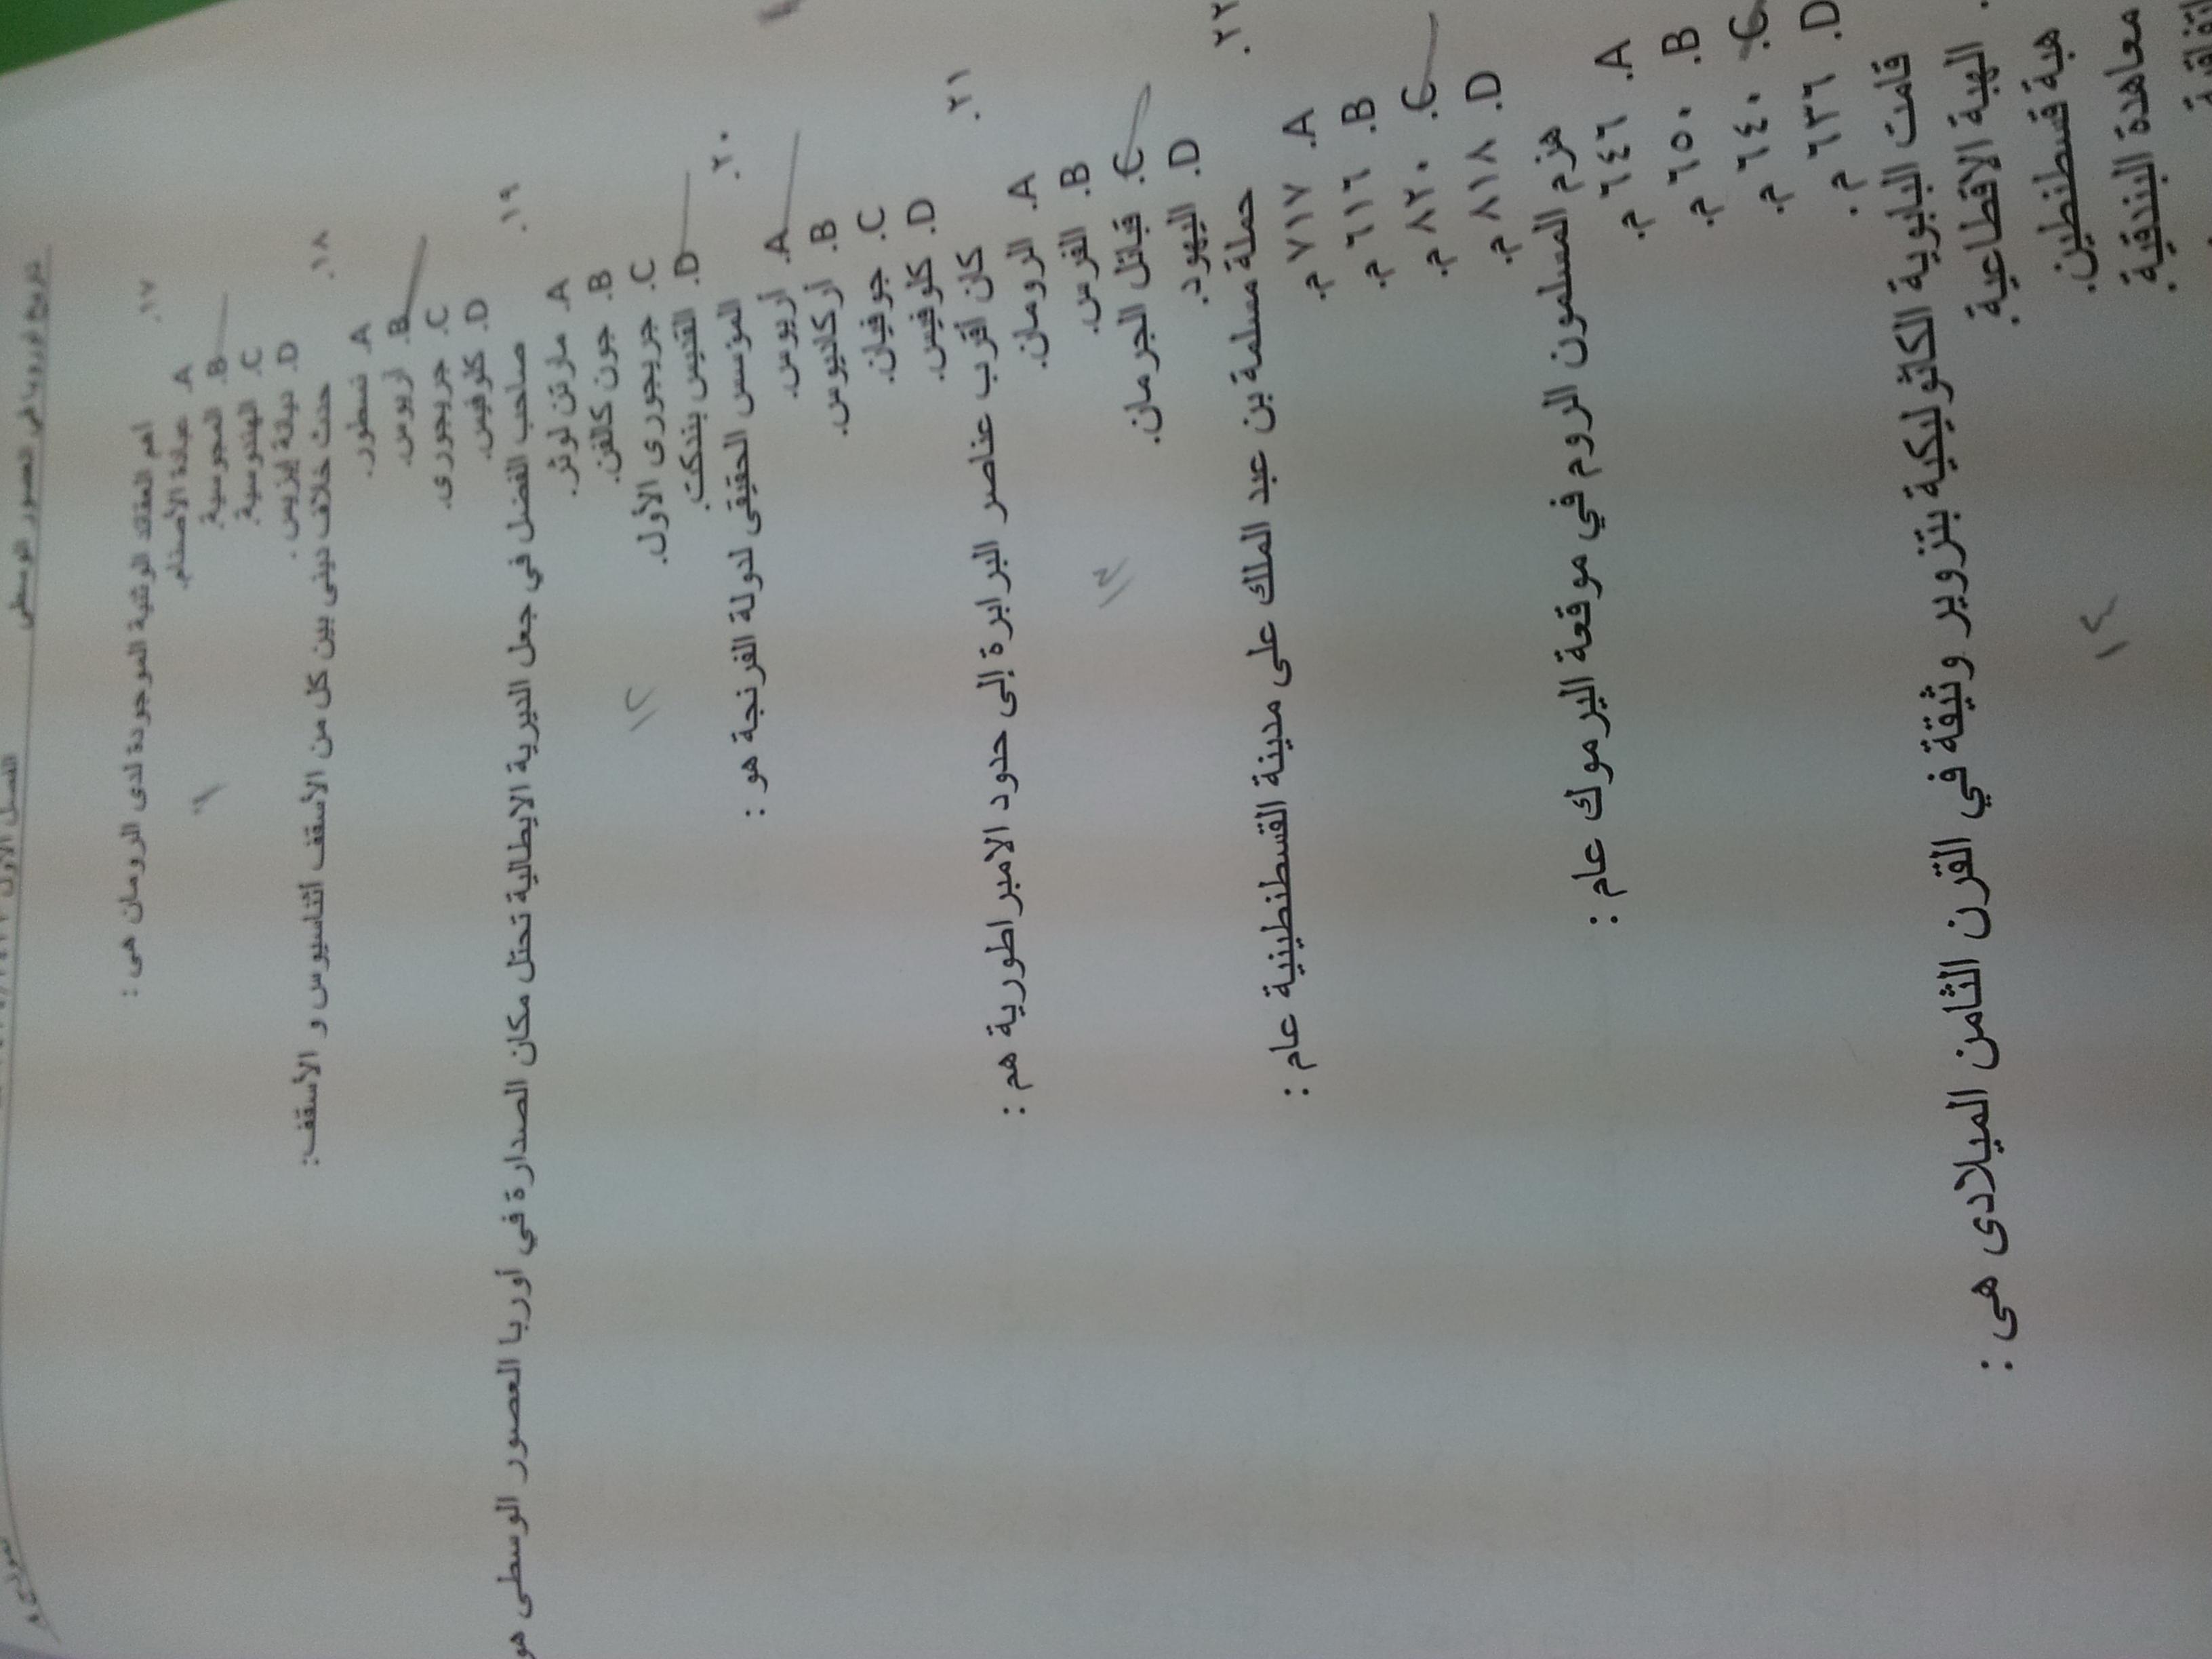 تاريخ أوروبا في العصور الوسطى
الفصل الأول
١٧. أهم العقائد الوثنية الموجودة لدى الرومان هى :
A. عبادة الأصنام.
B. المجوسية.
C. الهندوسية.
D. ديانة إيزيس.
٩
١٨. حدث خلاف دينى بين كل من الأسقف أثناسيوس و الأسقف:
A. نسطور.
B. اريوس.
C. جريجورى.
D. كلوفيس.
١٩. صاحب الفضل في جعل الديرية الايطالية تحتل مكان الصدارة في أوربا العصور الوسطى هو
A. مارتن لوثر.
B. جون كالفن.
C. جريجورى الأول.
D. القديس بندكت.
١٢
٢٠. المؤسس الحقيقى لدولة الفرنجة هو :
A. أريوس.
B. أركاديوس.
C. جوفيان.
D. كلوفيس.
٢١. كان أقرب عناصر البرابرة إلى حدود الامبراطورية هم :
A. الرومان.
B. الفرس.
C. قبائل الجرمان.
D. اليهود.
١٣
٢٢. حملة مسلمة بن عبد الملك على مدينة القسطنطينية عام :
A. ٧١٧ م.
B. ٦١٦ م.
C. ٨٢٠ م.
D. ٨١٨ م.
هزم المسلمون الروم في موقعة اليرموك عام :
A. ٦٤٦ م.
B. ٦٥٠ م.
C. ٦٤٠ م.
D. ٦٣٦ م.
قامت البابوية الكاثوليكية بتزوير وثيقة في القرن الثامن الميلادى هى :
الهبة الاقطاعية.
هبة قسطنطين.
معاهدة البندقية.
١٤